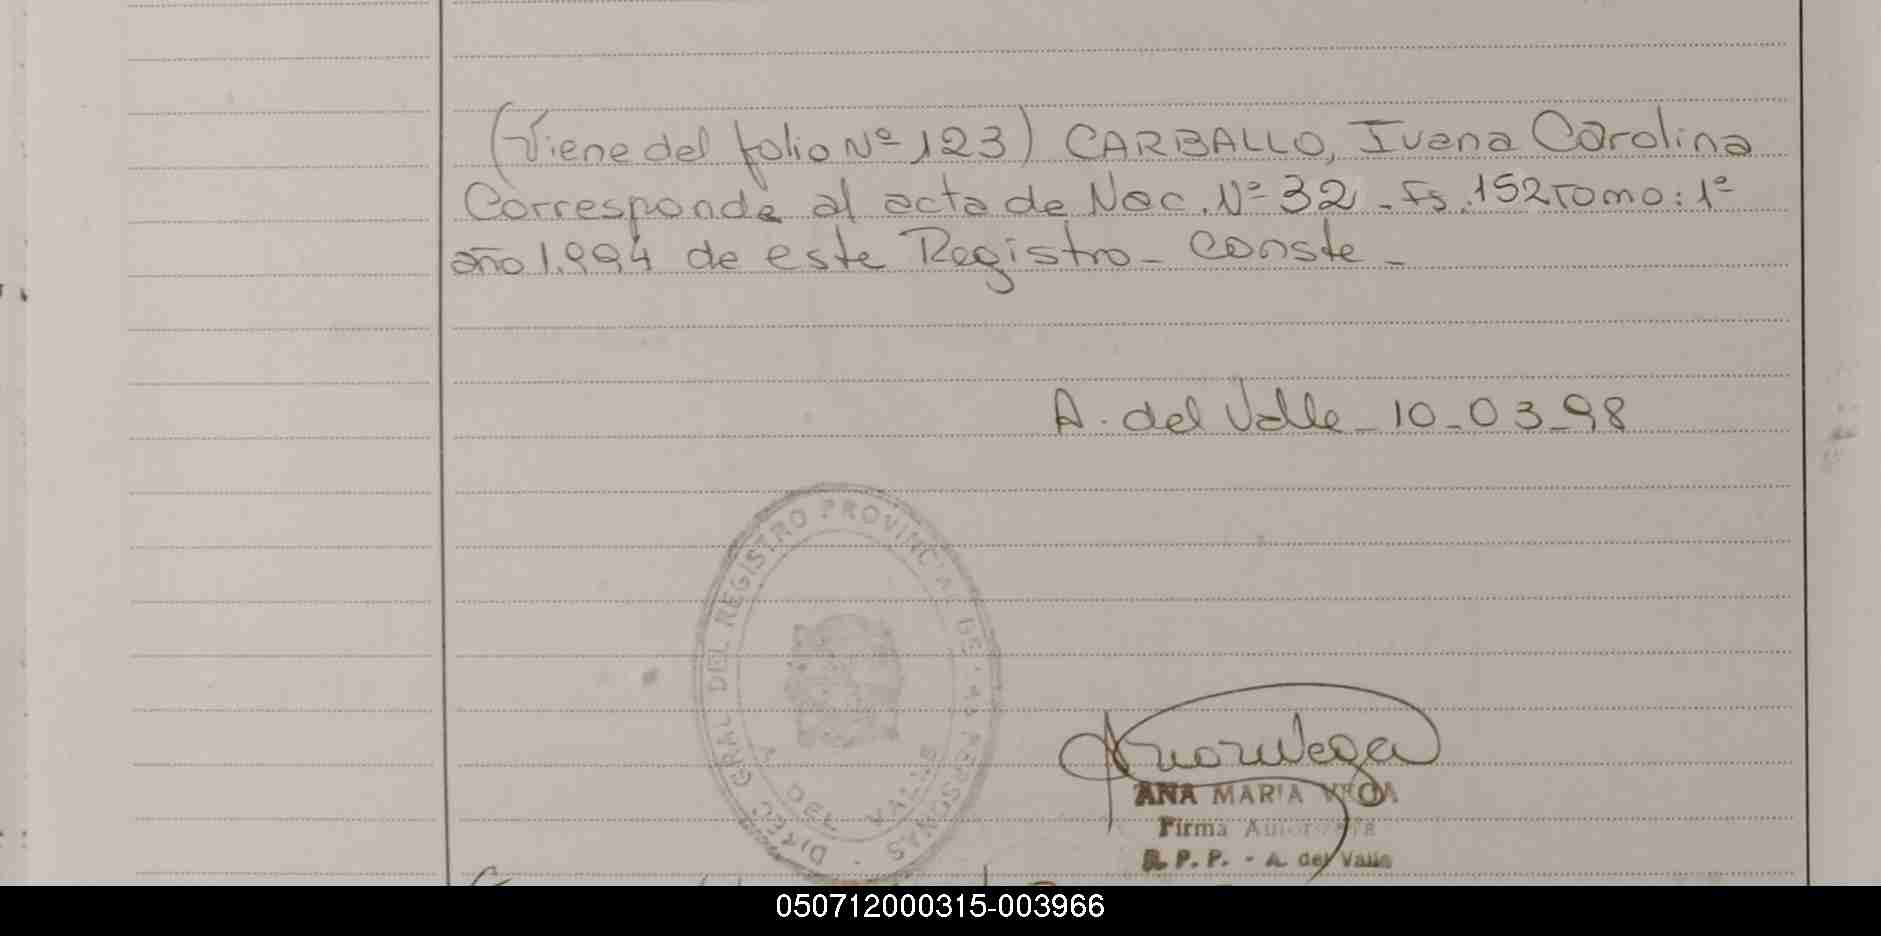 (Viene del folio Nº 123) CARBALLO, Ivana Carolina
Corresponde al acta de Nac. Nº 32 - Fs. 152 Tomo: 1º
año 1.994 de este Registro - Conste -
A. del Valle - 10-03-98
DIREC. GRAL DEL REGISTRO PROVINCIAL DE LAS PERSONAS
A. DEL VALLE
ANA MARIA VEGA
Firma Autorizada
R. P. P. - A. del Valle
050712000315-003966